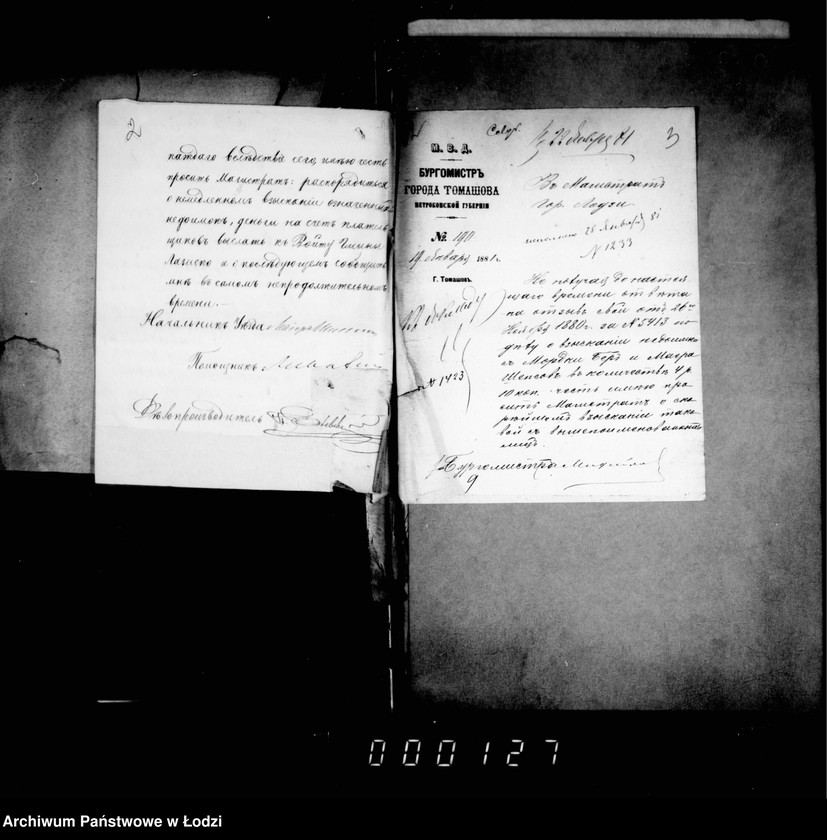 2
каждаго вслѣдствіе сего, имѣю честь
просить Магистратъ: распорядиться
о немедленномъ взысканіи означенныхъ
недоимокъ, деньги на счетъ платель
щиковъ выслать къ Войту Гмины
Лагиско и о послѣдующемъ сообщить
мнѣ въ самомъ непродолжительномъ
времени.
Начальникъ Уѣзда
Помощникъ
Дѣлопроизводитель
3
22 Января 81
М. В. Д.
БУРГОМИСТРЪ
ГОРОДА ТОМАШОВА
ПЕТРОКОВСКОЙ ГУБЕРНІИ
№ 190
19 Января 1881 г.
Г. Томашовъ.
№ 1423
Въ Магистратъ
Гор. Лодзи
28 Января 81
№ 1233
Не получая до настоя
щаго времени отвѣта
на отзывъ свой отъ 26го
Ноября 1880 г. за № 5413 по
дѣлу о взысканіи недоимки
съ Мордки Берд и Маера
Шепсовъ въ количествѣ 4 р
10 коп. честь имѣю про
сить Магистратъ о ско
рѣйшемъ взысканіи тако
вой съ вышепоименованныхъ
лицъ.
Бургомистра
9
000127
Archiwum Państwowe w Łodzi